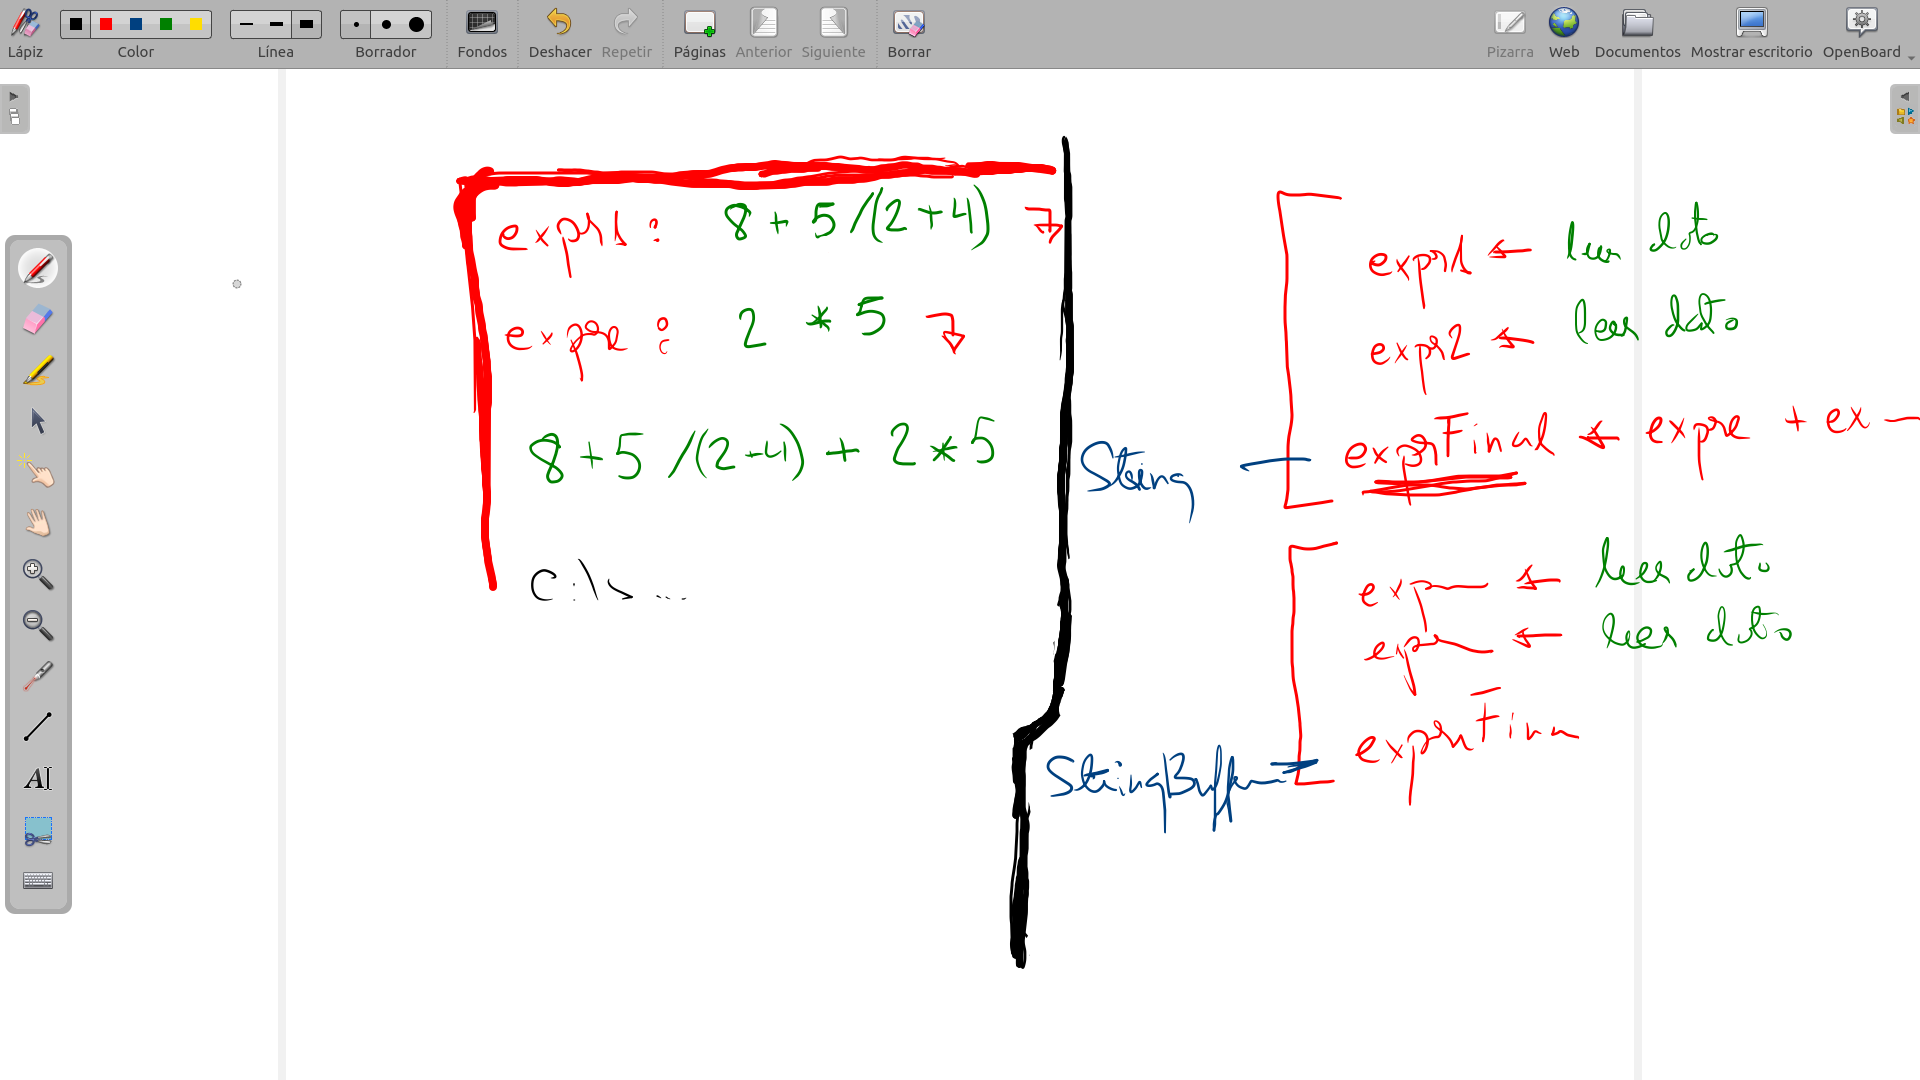 Lápiz Color Línea Borrador Fondos Deshacer Repetir Páginas Anterior Siguiente Borrar Pizarra Web Documentos Mostrar escritorio OpenBoard
expr1: 8 + 5 /(2+4)
expre: 2 * 5
8+5 /(2+4) + 2*5
C:\> ...
String
expr1 ← leer dato
expr2 ← leer dato
exprFinal ← expre + ex
StringBuffer
exp ← leer dato
exp ← leer dato
exprFin